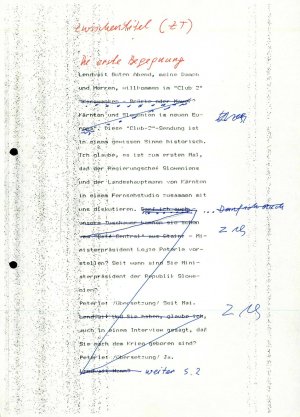 Zwischentitel (ZT)
Die erste Begegnung
Lendvai: Guten Abend, meine Damen
und Herren, willkommen im "Club 2"
Kärnten und Slowenien im neuen Eu-
ropa". Diese "Club-2"-Sendung ist
in einem gewissen Sinne historisch.
Ich glaube, es ist zum ersten Mal,
daß der Regierungschef Sloweniens
und der Landeshauptmann von Kärnten
in einem Fernsehstudio zusammen mit
uns diskutieren. Darf ich auch
unsere Zuschauer
aus - Mi-
nisterpräsident Lojze Peterle vor-
stellen? Seit wann sind Sie Mini-
sterpräsident der Republik Slowe-
nien?
Peterle: /Übersetzung/ Seit Mai.
Lendvai: Und Sie haben, glaube ich,
auch in einem Interview gesagt, daß
Sie nach dem Krieg geboren sind?
Peterle: /Übersetzung/ Ja.
Lendvai: weiter S. 2